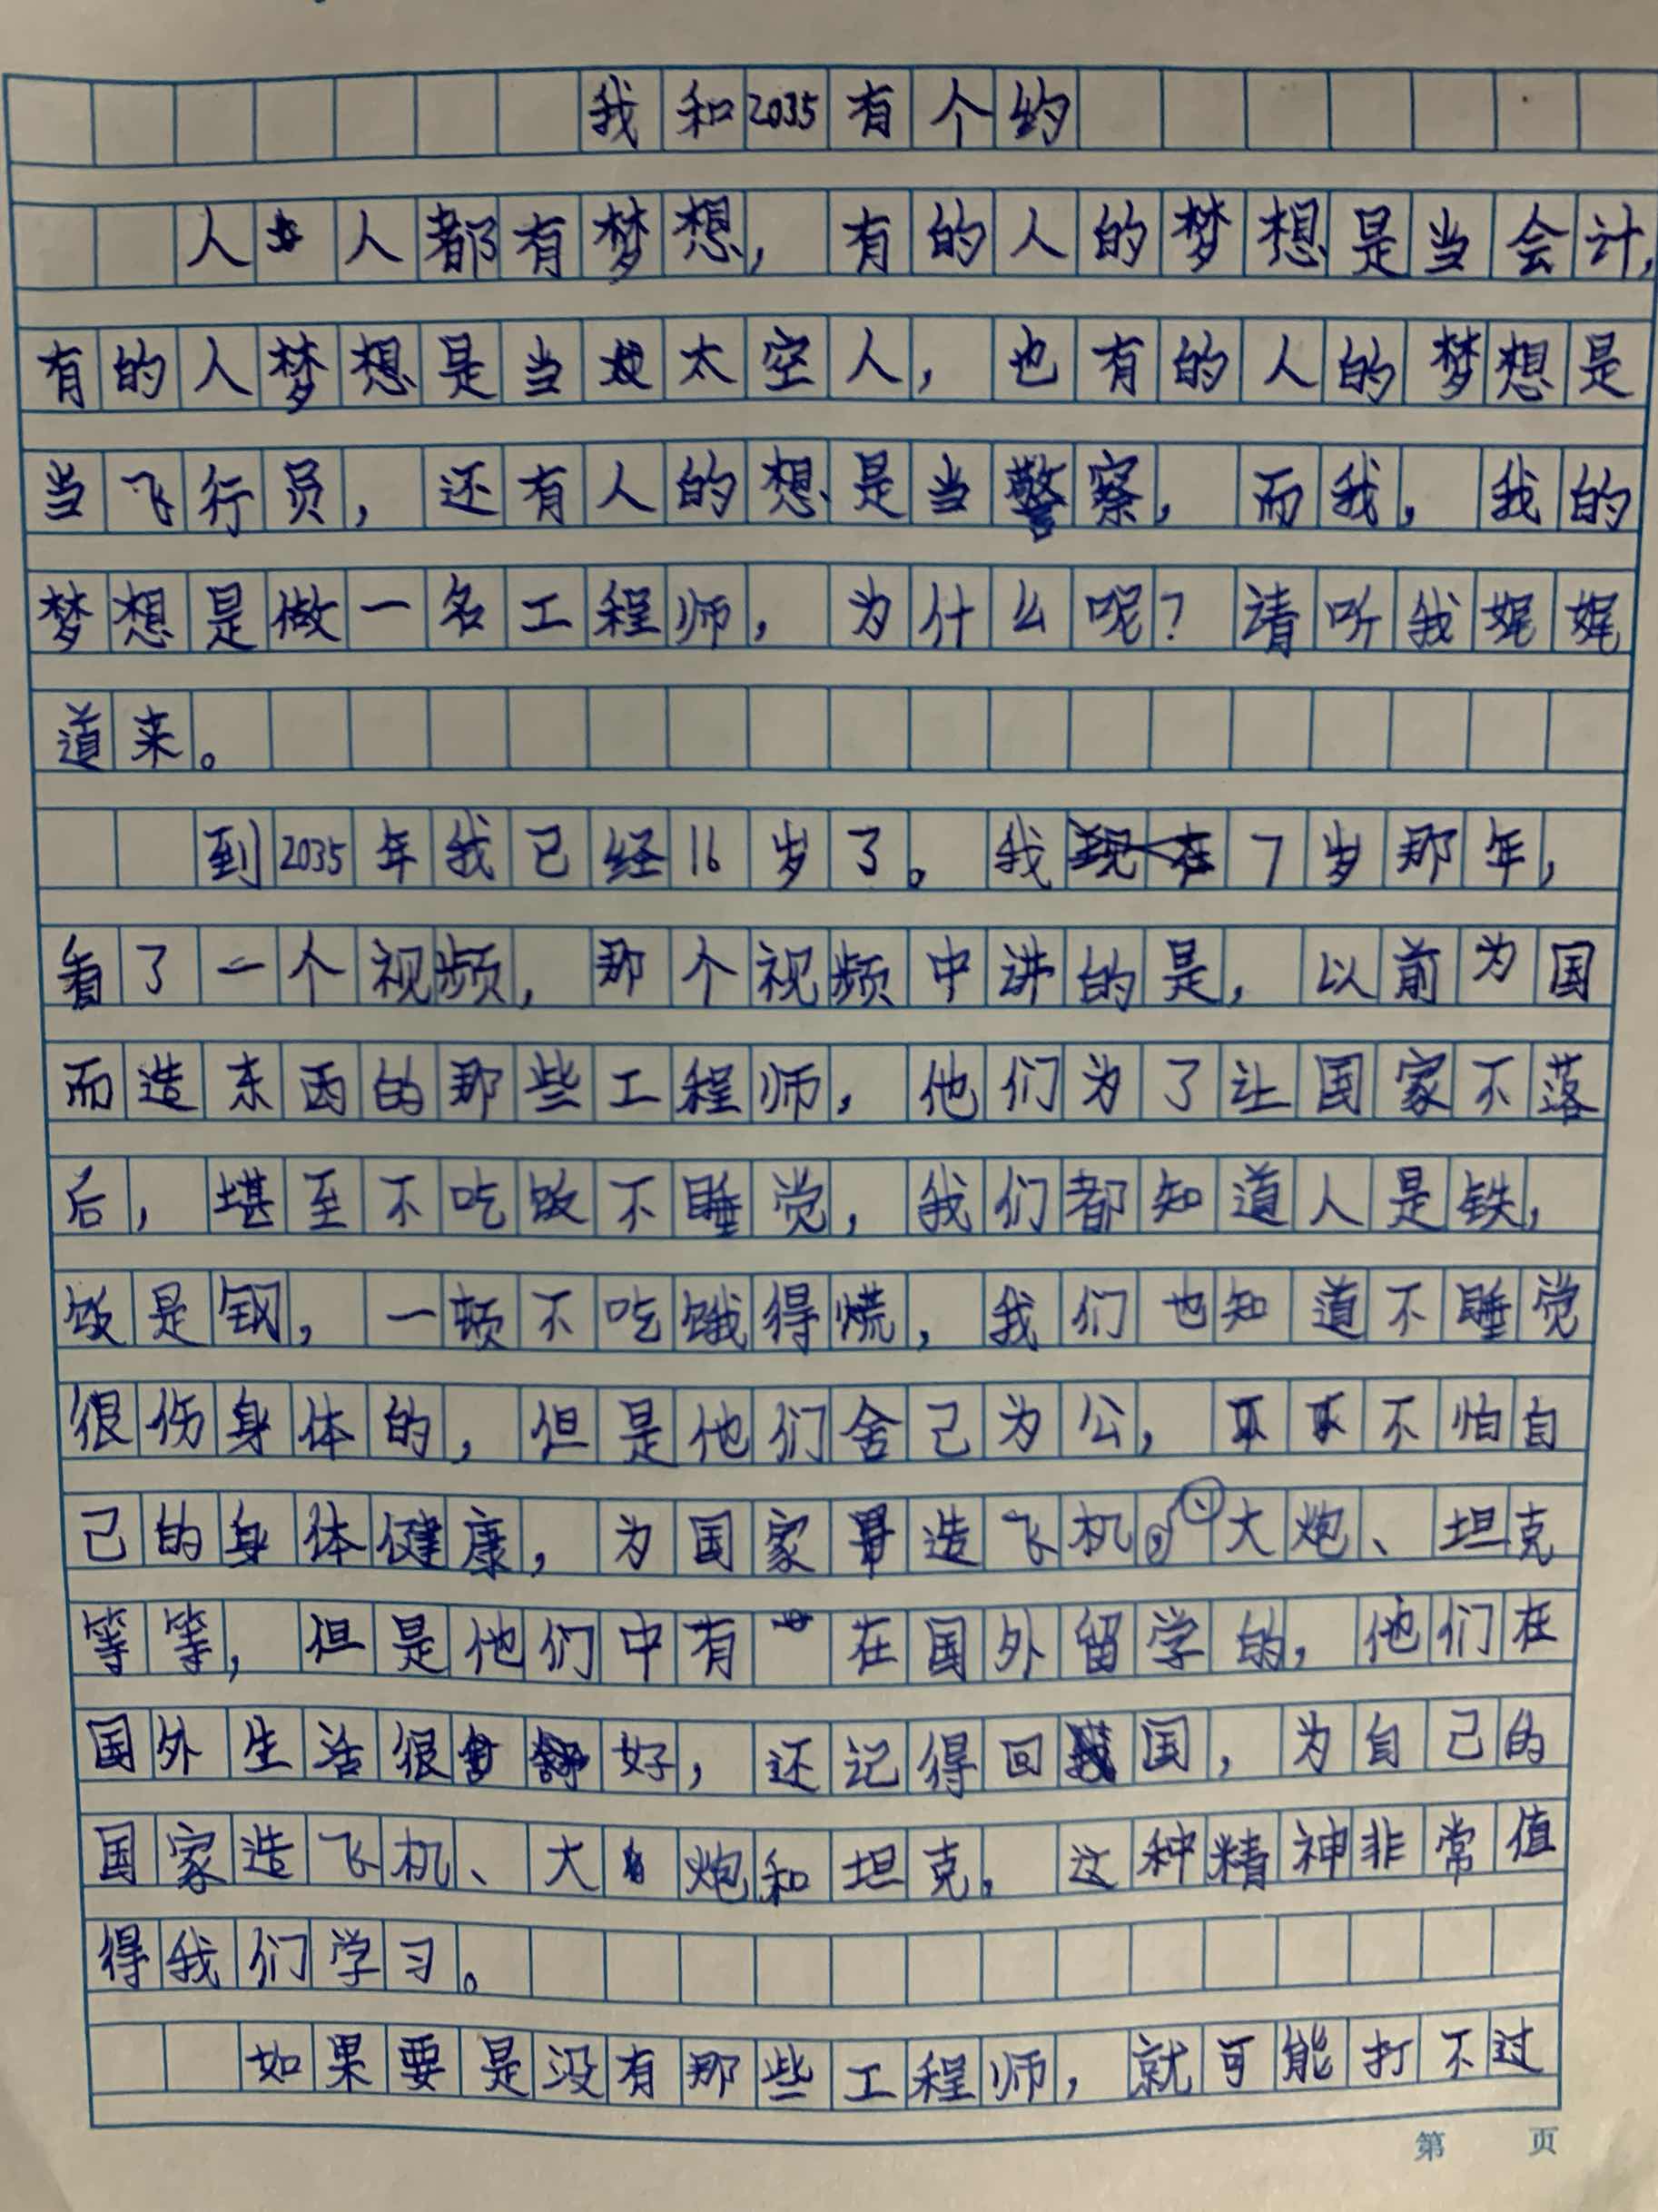 我和2035有个约
人人都有梦想，有的人的梦想是当会计，
有的人梦想是当太空人，也有的人的梦想是
当飞行员，还有人的想是当警察，而我，我的
梦想是做一名工程师，为什么呢？请听我娓娓
道来。
到2035年我已经16岁了。我7岁那年，
看了一个视频，那个视频中讲的是，以前为国
而造东西的那些工程师，他们为了让国家不落
后，堪至不吃饭不睡觉，我们都知道人是铁，
饭是钢，一顿不吃饿得慌，我们也知道不睡觉
很伤身体的，但是他们舍己为公，不怕自
己的身体健康，为国家造飞机、大炮、坦克
等等，但是他们中有在国外留学的，他们在
国外生活很好，还记得回国，为自己的
国家造飞机、大炮和坦克，这种精神非常值
得我们学习。
如果要是没有那些工程师，就可能打不过
第 页